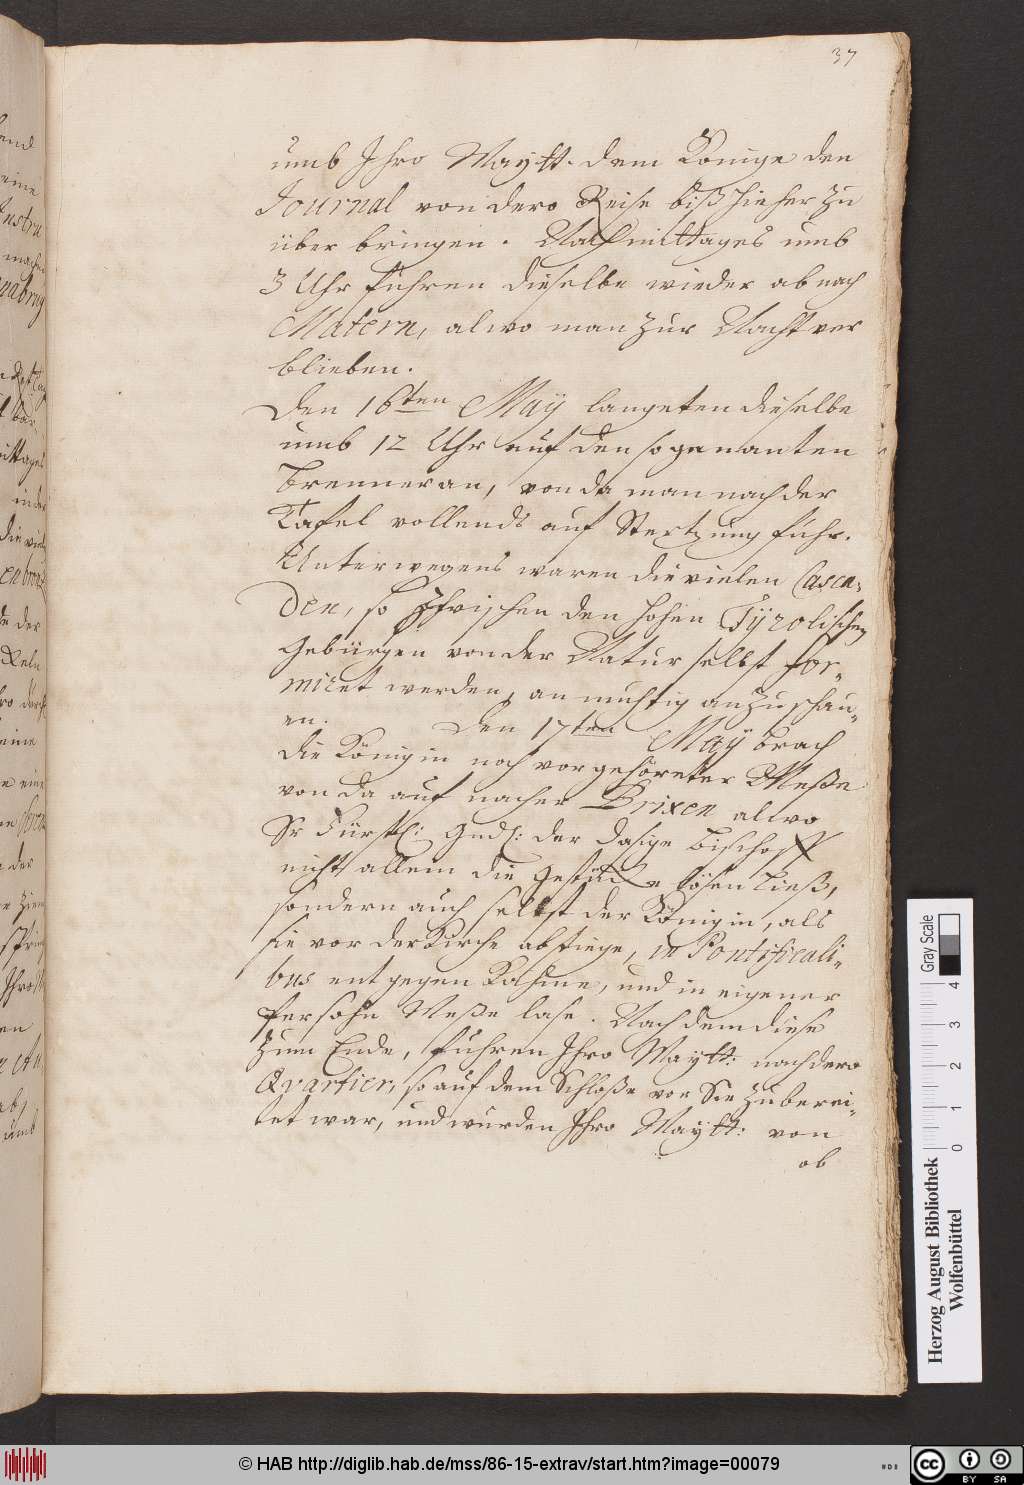 37
umb Ihro Maytt. dem Könige den
Journal von dero Reise biß hieher zu
über bringen. Nachmittages umb
3 Uhr fuhren dieselbe wieder ab nach
Matern, alwo man zur Nacht ver
blieben.
Den 16ten Maÿ langeten dieselbe
umb 12 Uhr auf den sogenanten
Brenner an, von da man nach der
Tafel vollends auf Stertzung fuhr.
Unterwegens waren die vielen Casca-
den, so zwischen den hohen Tÿrolischen
Gebürgen von der Natur selbst for-
miret werden, anmuhtig anzuschau-
en. Den 17ten Maÿ brach
die Königin nach vorgehöreter Meße
von da auf nacher Brixen alwo
Sr Fürstl: Gndl: der dasige Bischoff
nicht allein die Gestücke lösen ließ,
sondern auch selbst der Königin, als
sie vor der Kirche abstiege, in Pontificali-
bus entgegen Kahme, und in eigener
Persohn Meße lase. Nachdem diese
zum Ende, fuhren Ihro Maytt: nach dero
Qvartier, so auf dem Schloße vor Sie zuberei-
tet war, und wurden Ihro Maytt: von
ob
Herzog August Bibliothek
Wolfenbüttel
Gray Scale
0 1 2 3 4
© HAB http://diglib.hab.de/mss/86-15-extrav/start.htm?image=00079
cc BY SA